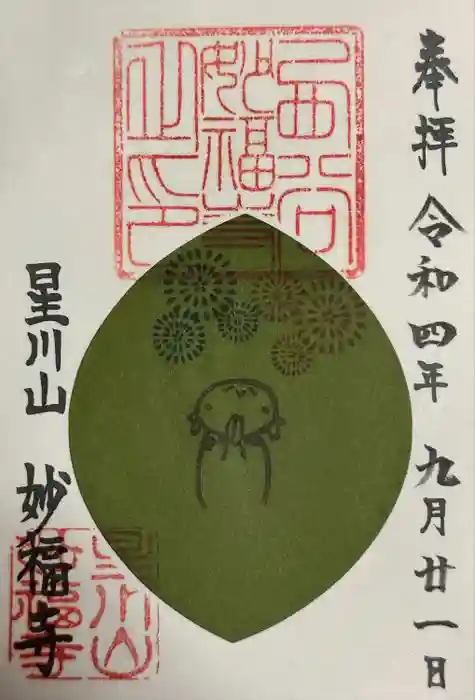 奉拝 令和四年 九月廿一日
西谷
妙福寺
星川山 妙福寺
星川山
妙福寺